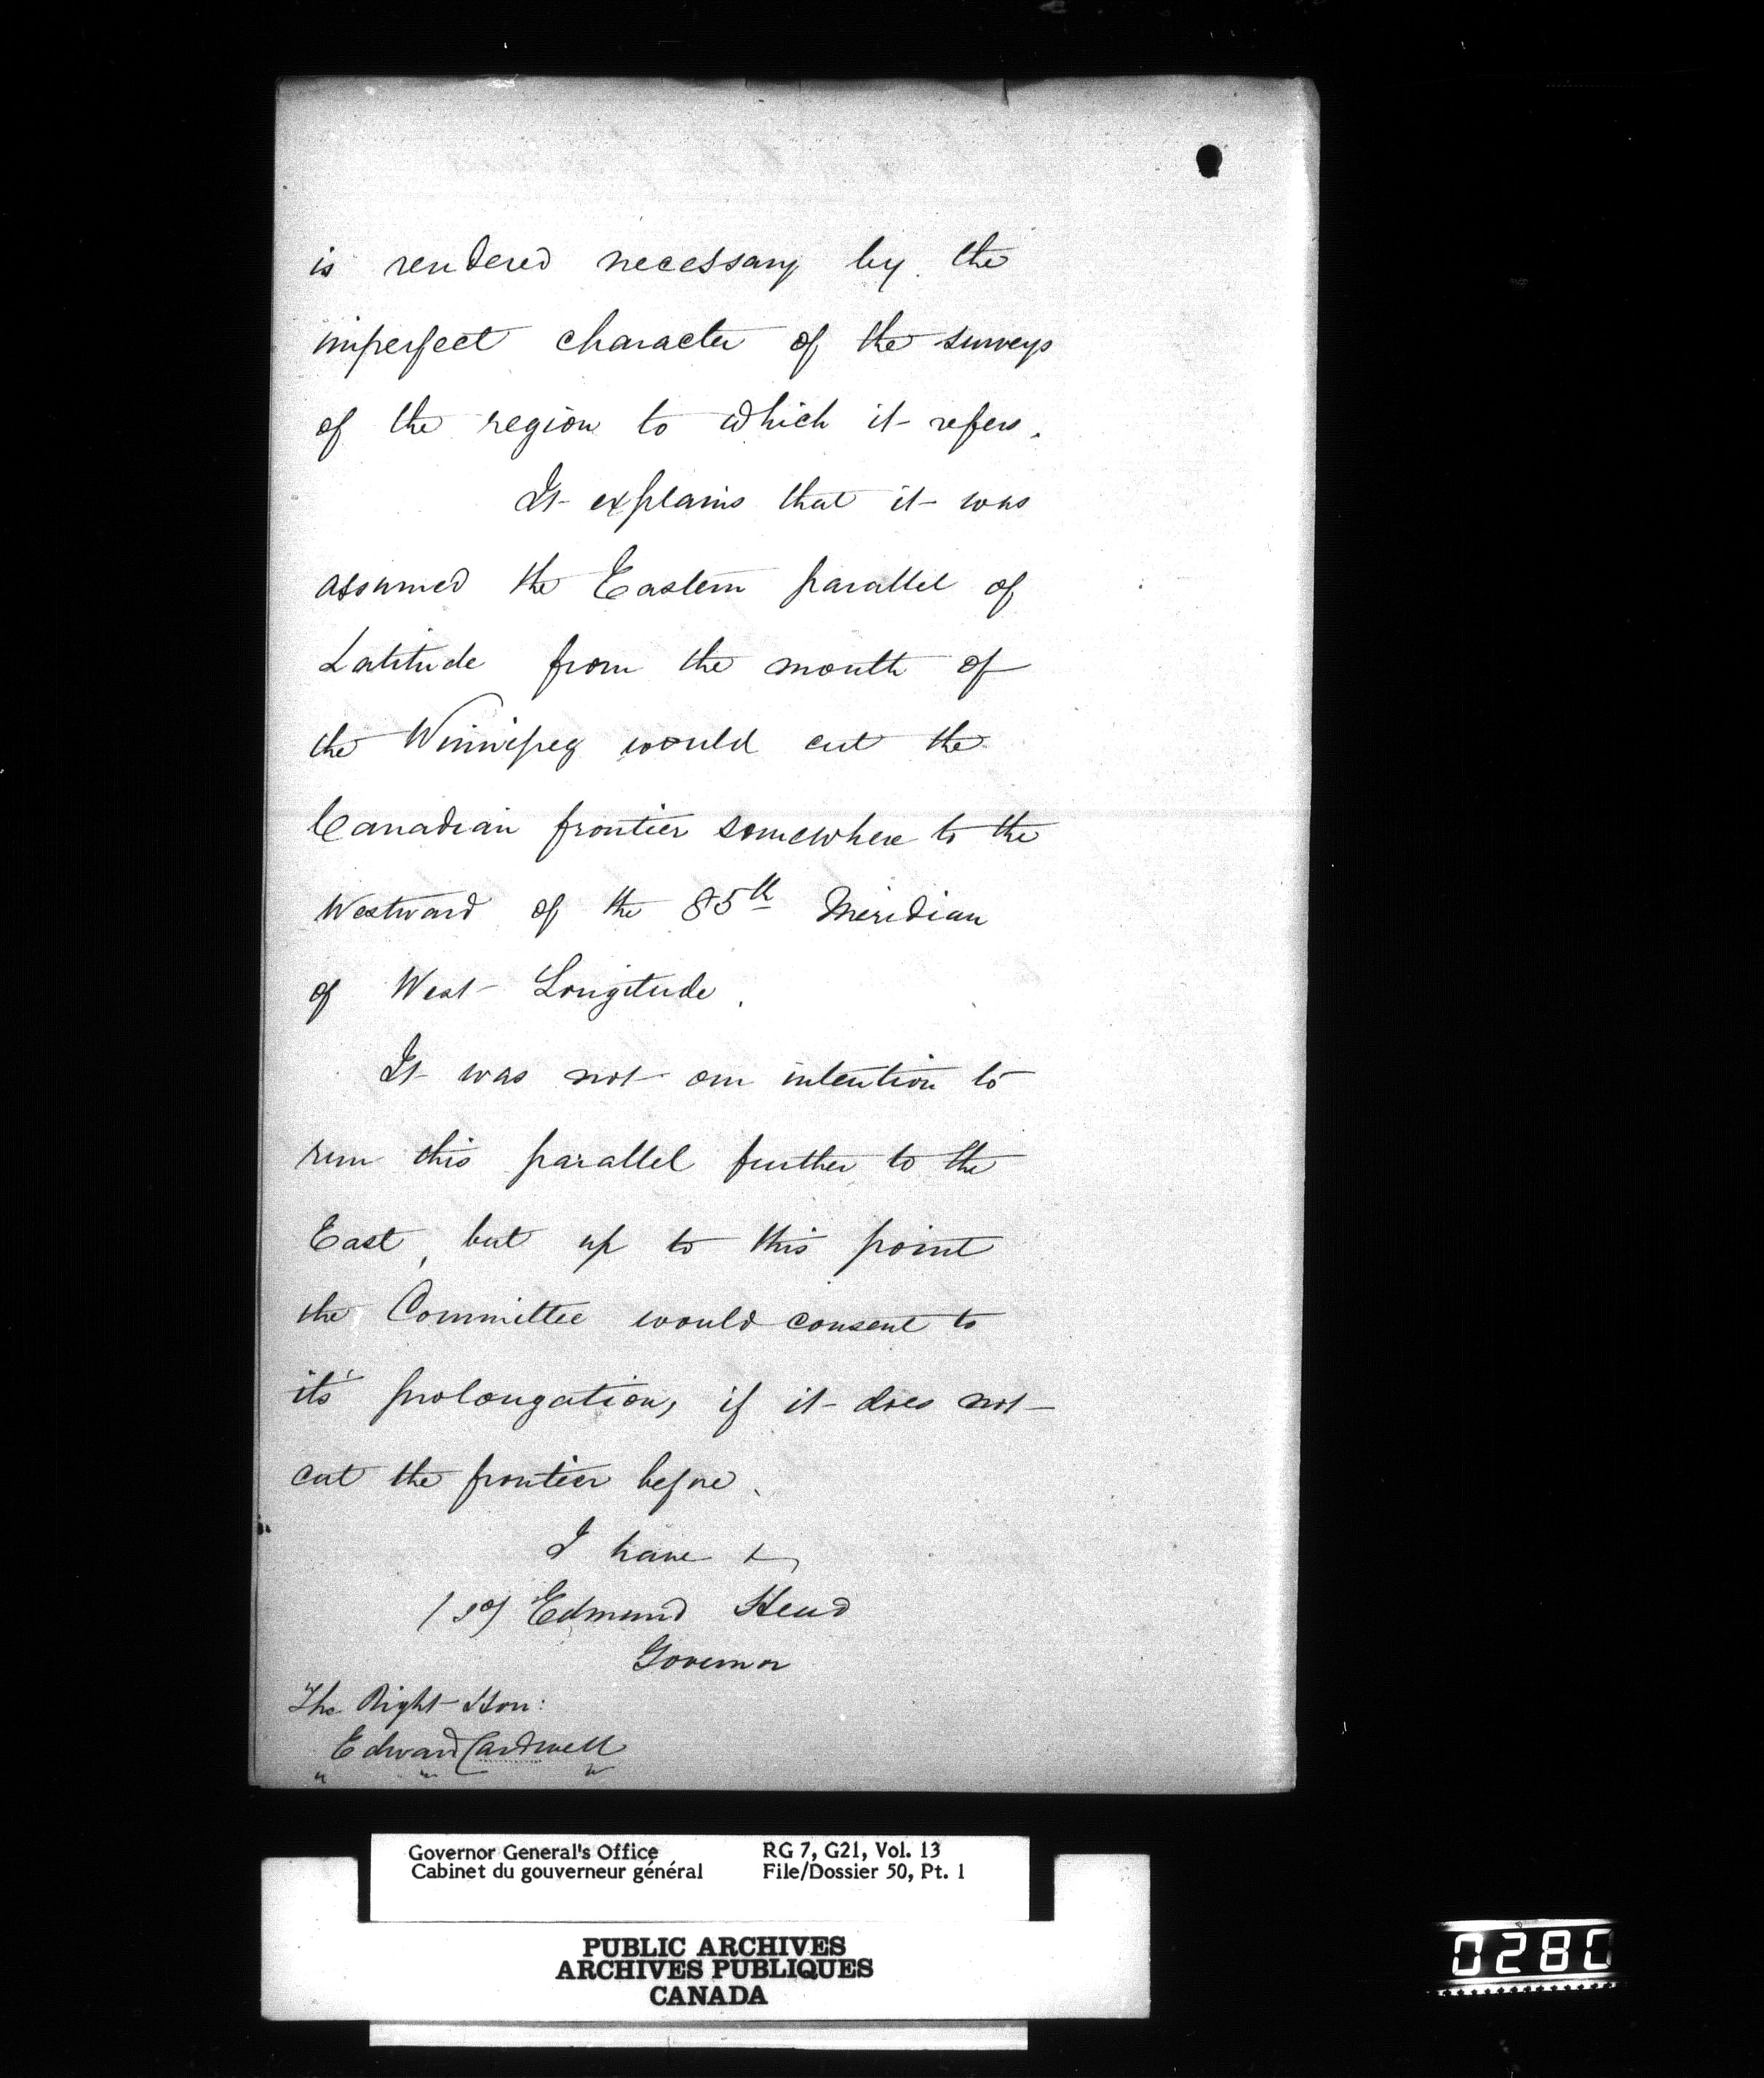 is rendered necessary by the
imperfect character of the surveys
of the region to which it refers.
It explains that it was
assumed the Eastern parallel of
Latitude from the mouth of
the Winnipeg would cut the
Canadian frontier somewhere to the
Westward of the 85th Meridian
of West Longitude.
It was not our intention to
run this parallel further to the
East, but up to this point
the Committee would consent to
it's prolongation, if it does not
cut the frontier before.
I have &
(sd) Edmund Head
Governor
The Right Hon:
Edward Cardwell
" " "
Governor General's Office RG 7, G21, Vol. 13
Cabinet du gouverneur général File/Dossier 50, Pt. 1
PUBLIC ARCHIVES
ARCHIVES PUBLIQUES
CANADA
0280